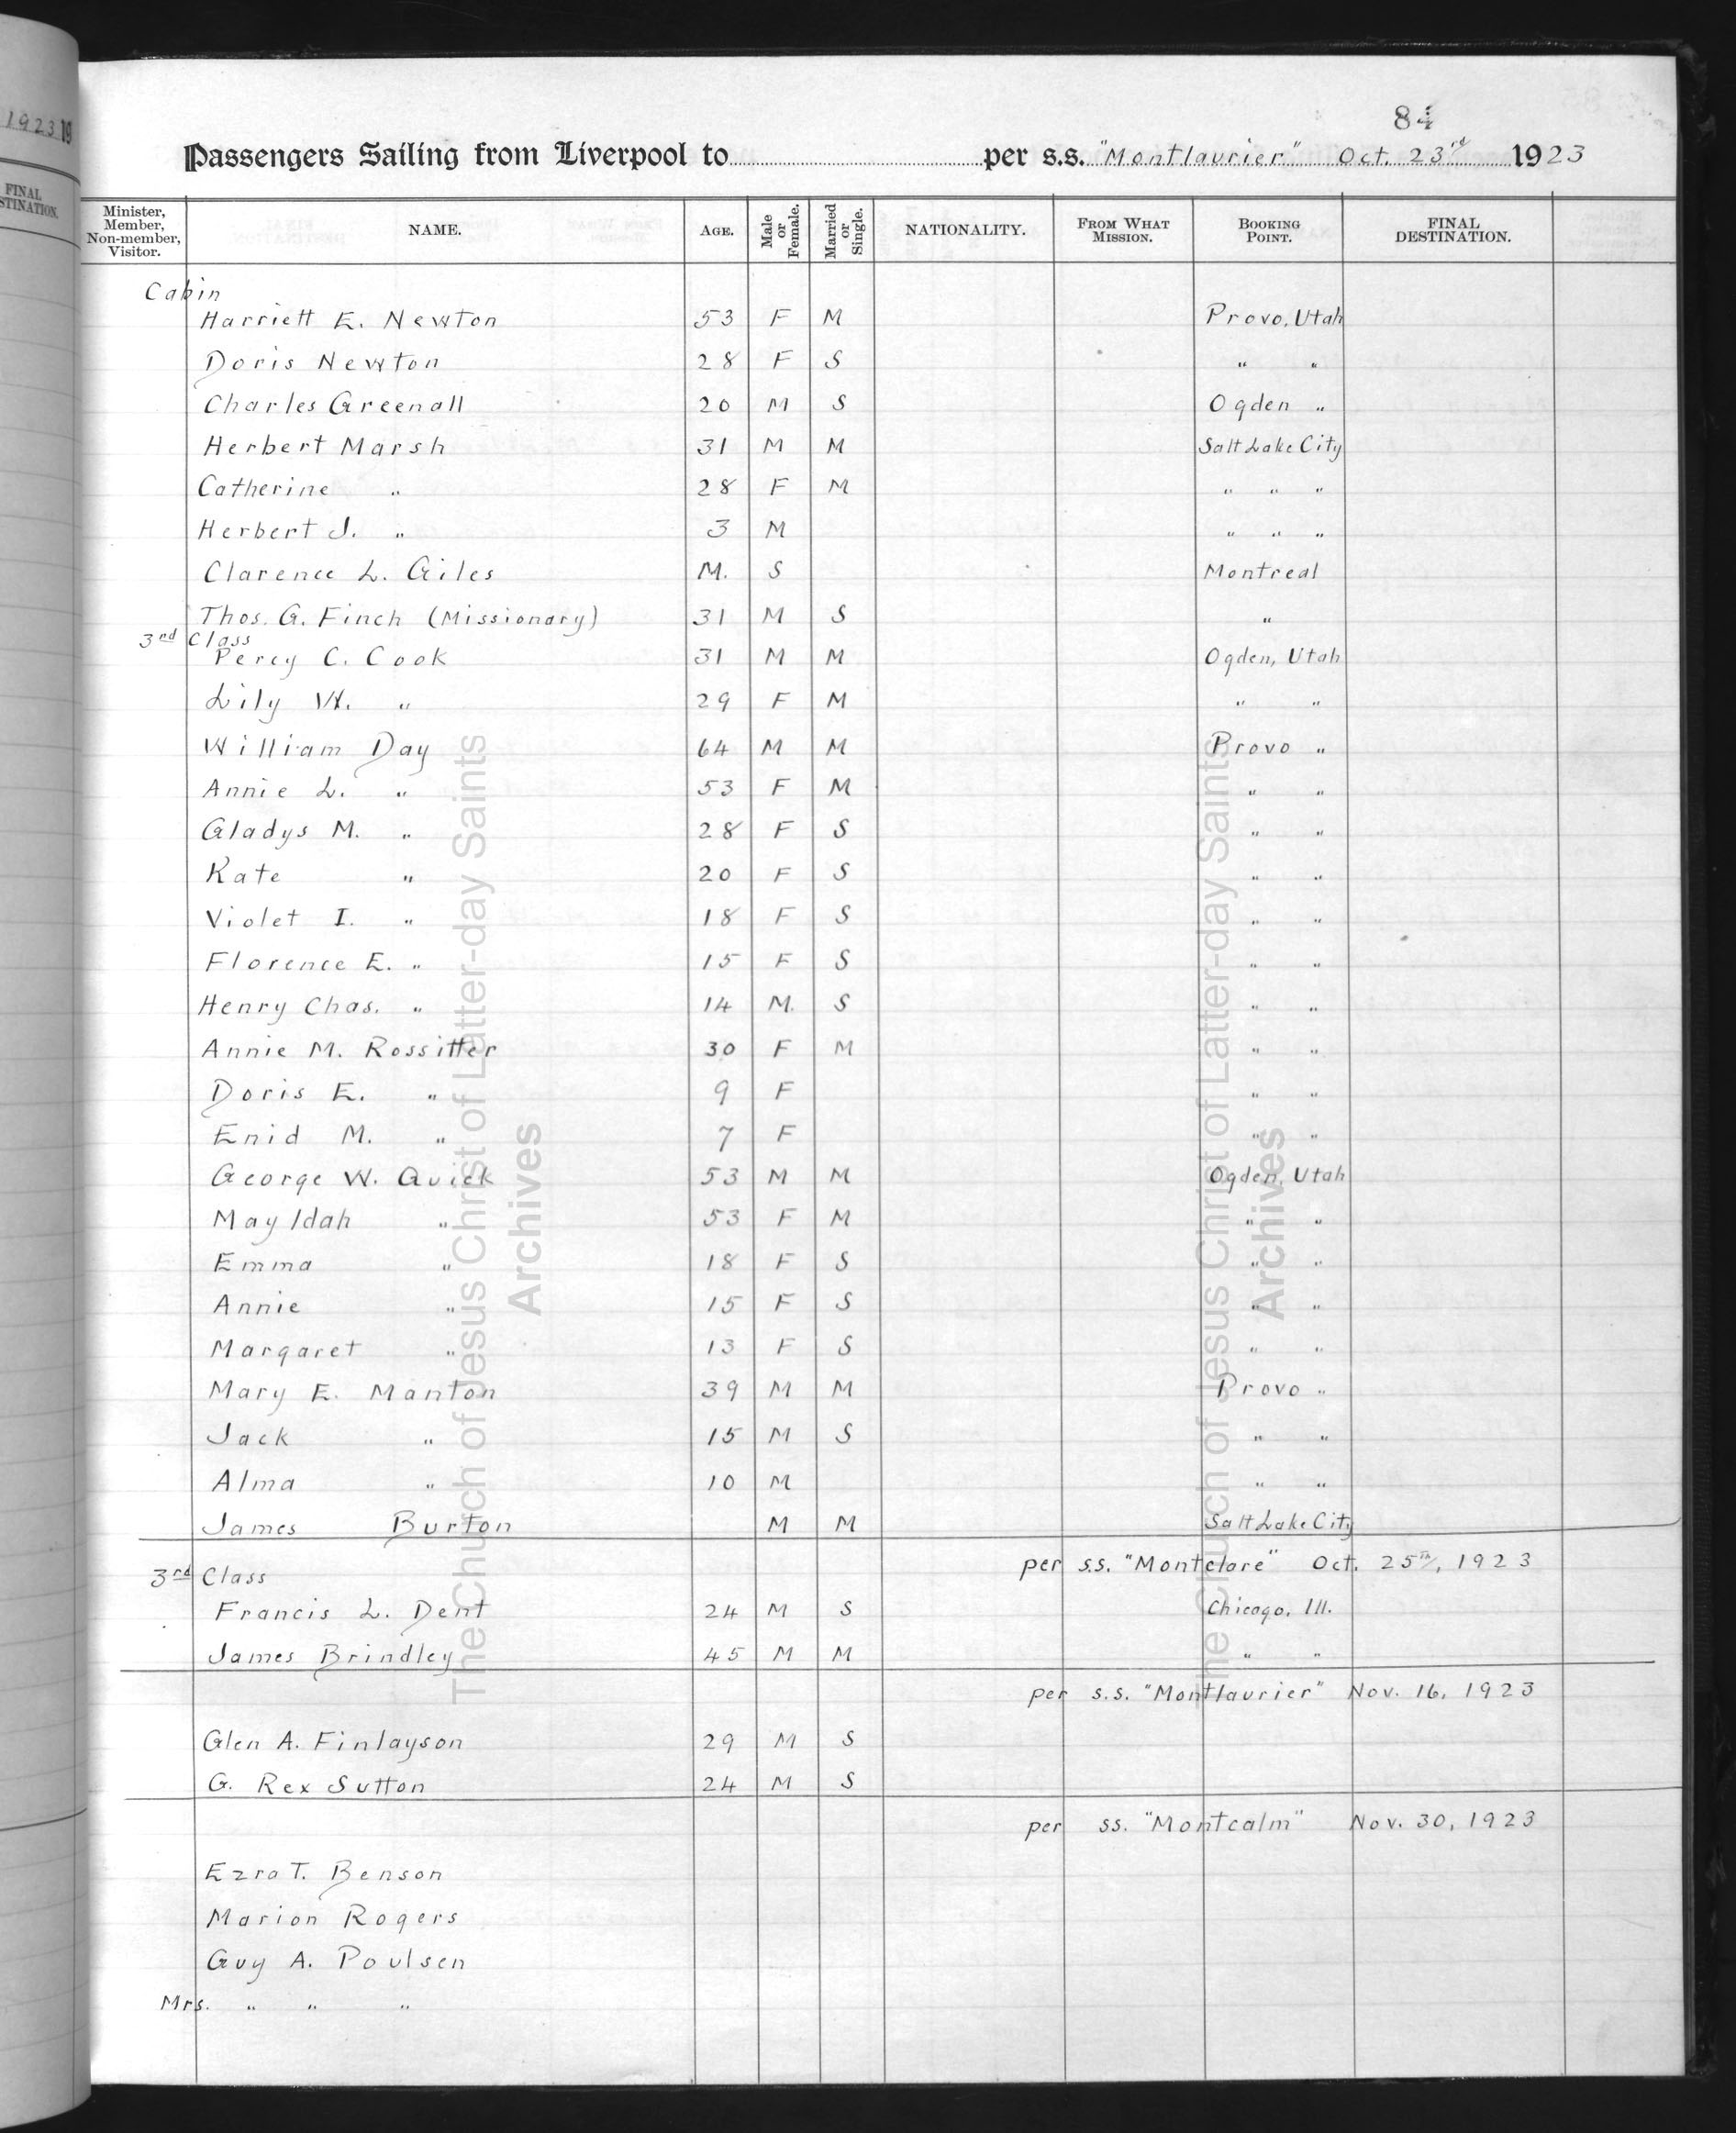 1923 19
FINAL
STINATION.
84
Passengers Sailing from Liverpool to per s.s. "Montlaurier" Oct. 23rd 1923
Minister, Member, Non-member, Visitor. NAME. AGE. Male or Female. Married or Single. NATIONALITY. FROM WHAT MISSION. BOOKING POINT. FINAL DESTINATION.
Cabin
Harriett E. Newton 53 F M Provo, Utah
Doris Newton 28 F S " "
Charles Greenall 20 M S Ogden "
Herbert Marsh 31 M M Salt Lake City
Catherine " 28 F M " " "
Herbert J. " 3 M " " "
Clarence L. Giles M. S Montreal
Thos. G. Finch (Missionary) 31 M S "
3rd Class
Percy C. Cook 31 M M Ogden, Utah
Lily W. " 29 F M " "
William Day 64 M M Provo "
Annie L. " 53 F M " "
Gladys M. " 28 F S " "
Kate " 20 F S " "
Violet I. " 18 F S " "
Florence E. " 15 F S " "
Henry Chas. " 14 M. S " "
Annie M. Rossitter 30 F M " "
Doris E. " 9 F " "
Enid M. " 7 F " "
George W. Quick 53 M M Ogden, Utah
May Idah " 53 F M " "
Emma " 18 F S " "
Annie " 15 F S " "
Margaret " 13 F S " "
Mary E. Manton 39 M M Provo "
Jack " 15 M S " "
Alma " 10 M " "
James Burton M M Salt Lake City
per s.s. "Montclare" Oct. 25th, 1923
3rd Class
Francis L. Dent 24 M S Chicago, Ill.
James Brindley 45 M M " "
per s.s. "Montlaurier" Nov. 16, 1923
Glen A. Finlayson 29 M S
G. Rex Sutton 24 M S
per ss. "Montcalm" Nov. 30, 1923
Ezra T. Benson
Marion Rogers
Guy A. Poulsen
Mrs. " " "
The Church of Jesus Christ of Latter-day Saints
Archives
The Church of Jesus Christ of Latter-day Saints
Archives